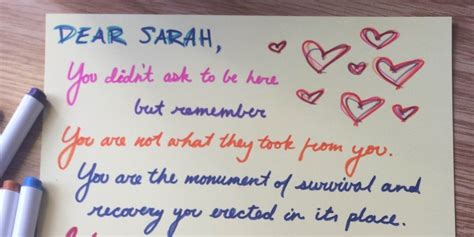 DEAR SARAH,
You didn't ask to be here
but remember
You are not what they took from you.
You are the monument of survival and
recovery you erected in its place.